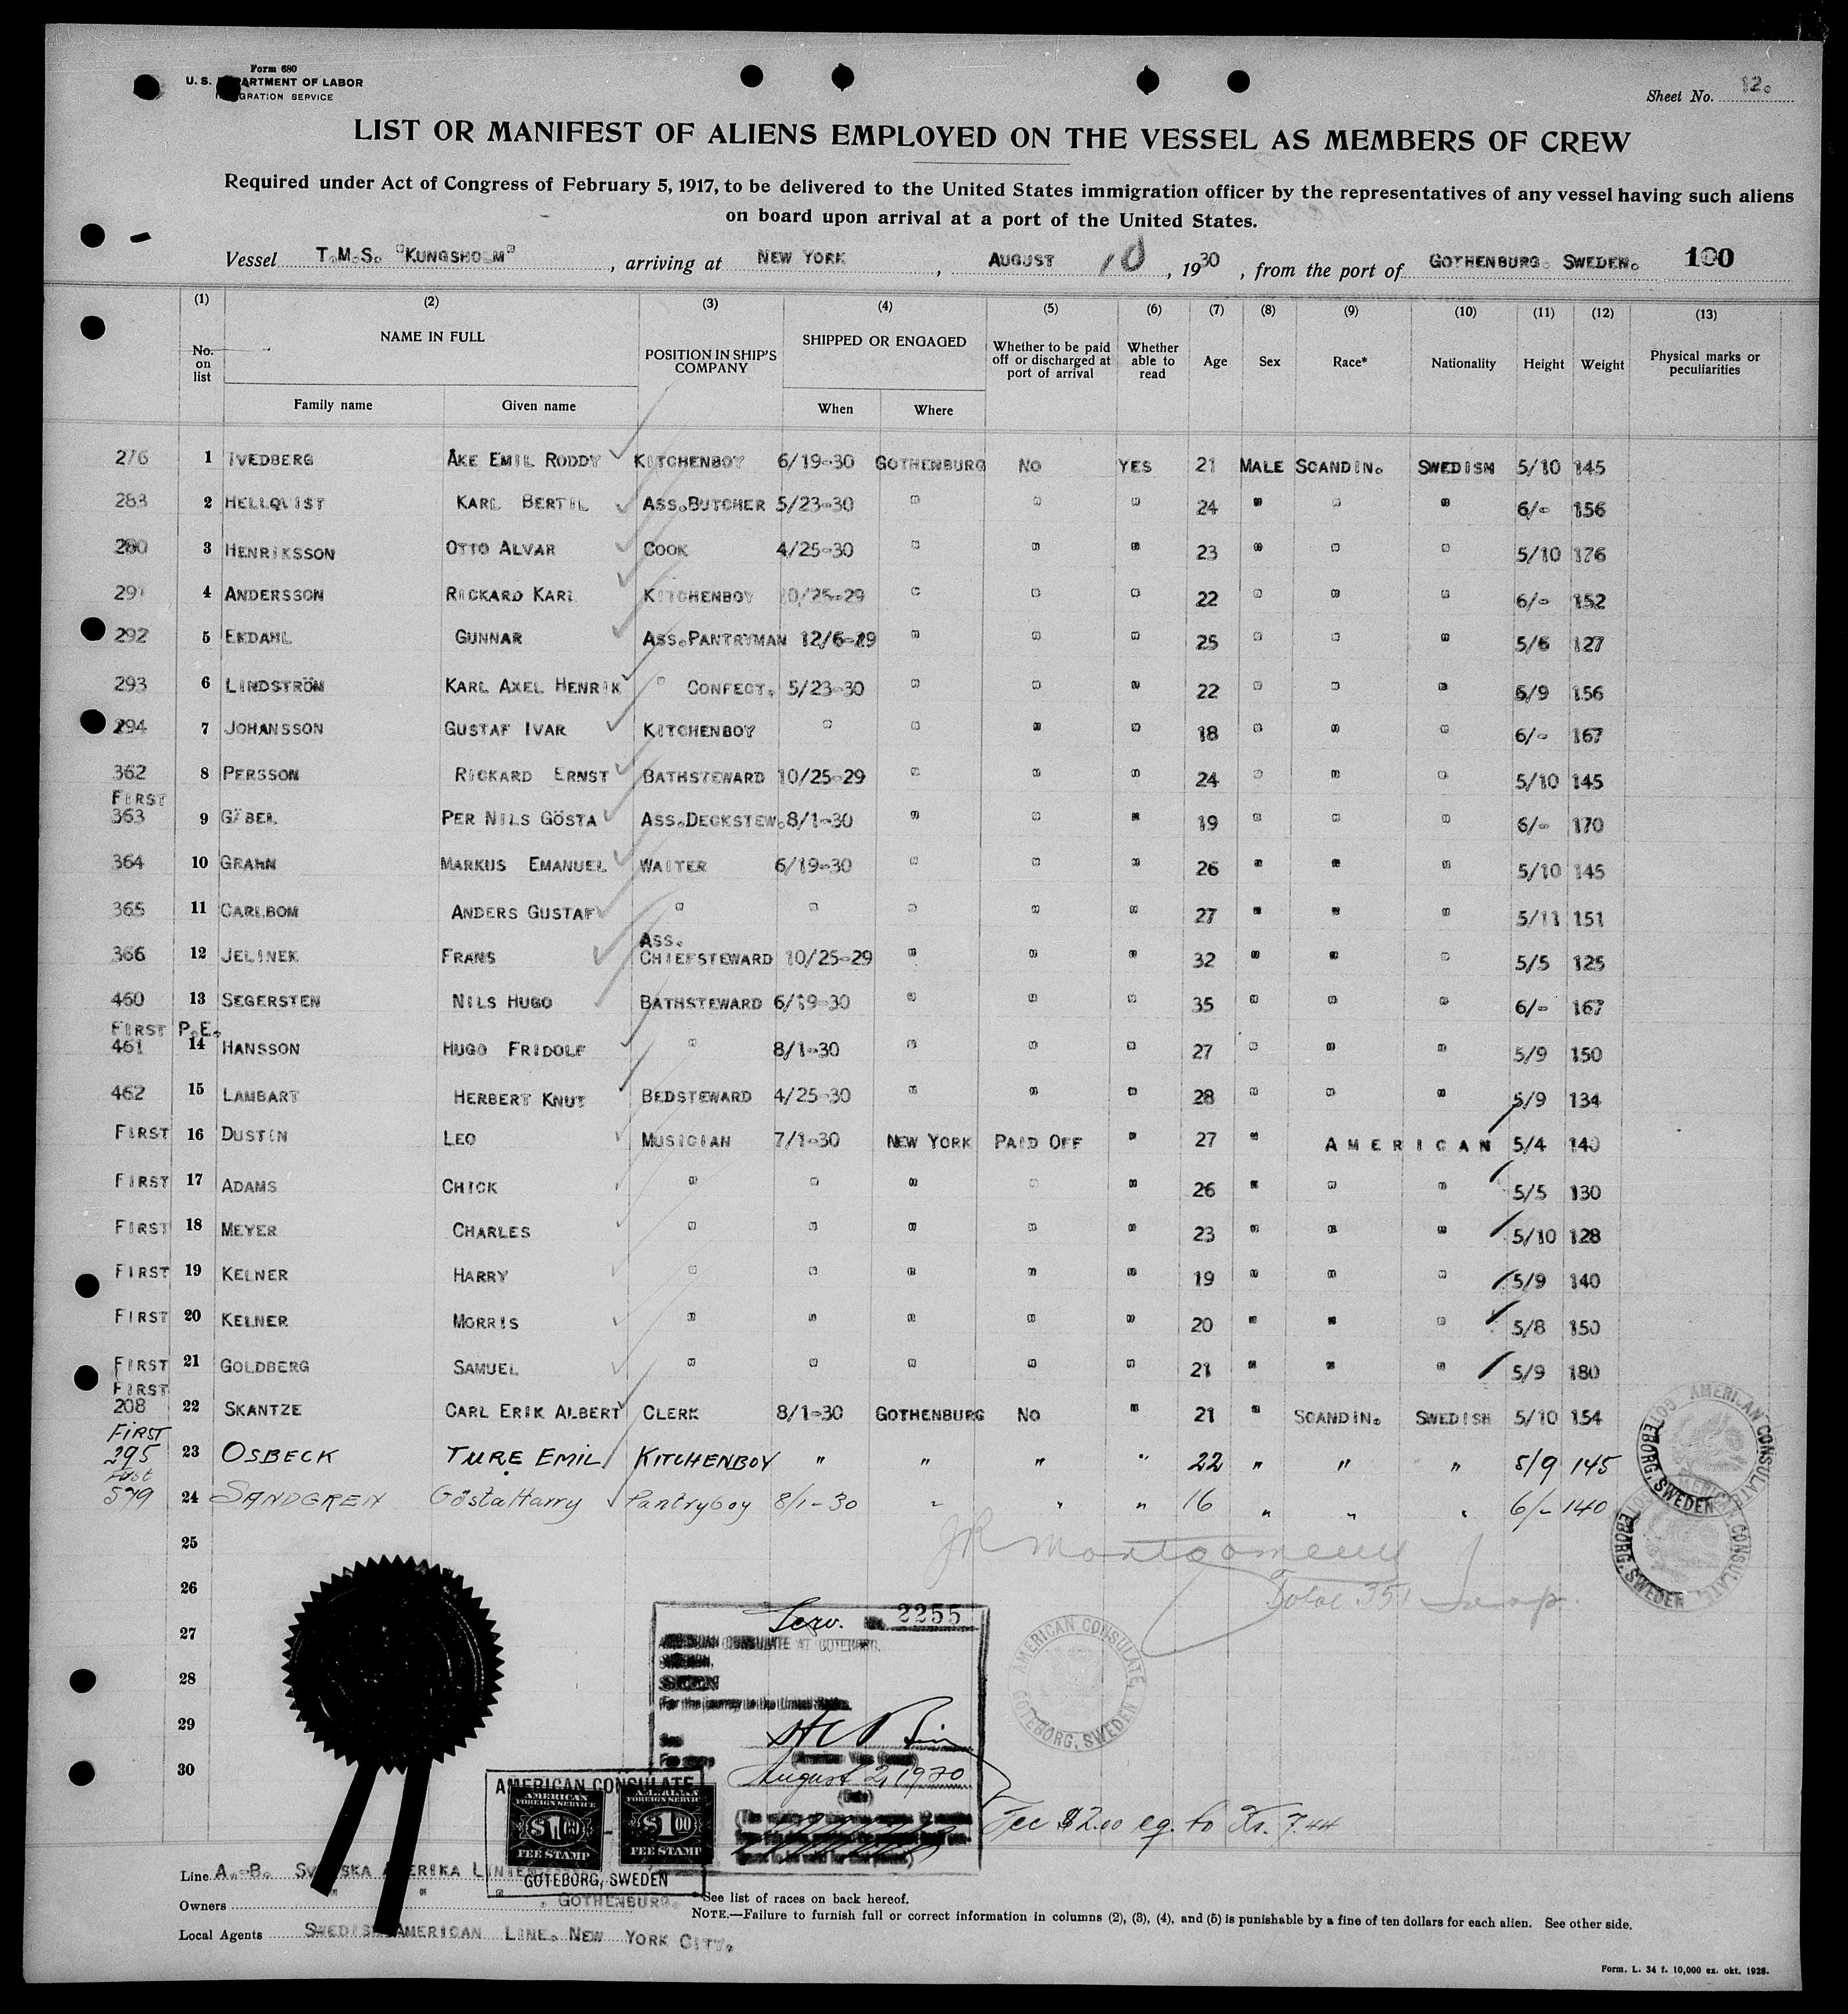 Form 680
U. S. DEPARTMENT OF LABOR
IMMIGRATION SERVICE
Sheet No. 12.
LIST OR MANIFEST OF ALIENS EMPLOYED ON THE VESSEL AS MEMBERS OF CREW
Required under Act of Congress of February 5, 1917, to be delivered to the United States immigration officer by the representatives of any vessel having such aliens
on board upon arrival at a port of the United States.
Vessel T.M.S. "KUNGSHOLM", arriving at NEW YORK, AUGUST 10, 1930, from the port of GOTHENBURG. SWEDEN. 100
(1) (2) (3) (4) (5) (6) (7) (8) (9) (10) (11) (12) (13)
No. on list NAME IN FULL Family name Given name POSITION IN SHIP'S COMPANY SHIPPED OR ENGAGED When Where Whether to be paid off or discharged at port of arrival Whether able to read Age Sex Race* Nationality Height Weight Physical marks or peculiarities
276 1 IVEDBERG ÅKE EMIL RODDY KITCHENBOY 6/19-30 GOTHENBURG NO YES 21 MALE SCANDIN. SWEDISH 5/10 145
283 2 HELLQVIST KARL BERTIL ASS.BUTCHER 5/23-30 " " " 24 " " " 6/- 156
280 3 HENRIKSSON OTTO ALVAR COOK 4/25-30 " " " 23 " " " 5/10 176
291 4 ANDERSSON RICKARD KARL KITCHENBOY 10/25-29 " " " 22 " " " 6/- 152
292 5 EKDAHL GUNNAR ASS.PANTRYMAN 12/6-29 " " " 25 " " " 5/6 127
293 6 LINDSTRÖM KARL AXEL HENRIK " CONFECT. 5/23-30 " " " 22 " " " 5/9 156
294 7 JOHANSSON GUSTAF IVAR KITCHENBOY " " " " 18 " " " 6/- 167
362 8 PERSSON RICKARD ERNST BATHSTEWARD 10/25-29 " " " 24 " " " 5/10 145
FIRST
363 9 GÏBEL PER NILS GÖSTA ASS.DECKSTEW. 8/1-30 " " " 19 " " " 6/- 170
364 10 GRAHN MARKUS EMANUEL WAITER 6/19-30 " " " 26 " " " 5/10 145
365 11 CARLBOM ANDERS GUSTAF " " " " " 27 " " " 5/11 151
366 12 JELINEK FRANS ASS. CHIEFSTEWARD 10/25-29 " " " 32 " " " 5/5 125
460 13 SEGERSTEN NILS HUGO BATHSTEWARD 6/19-30 " " " 35 " " " 6/- 167
FIRST P.E.
461 14 HANSSON HUGO FRIDOLF " 8/1-30 " " " 27 " " " 5/9 150
462 15 LAMBART HERBERT KNUT BEDSTEWARD 4/25-30 " " " 28 " " " 5/9 134
FIRST 16 DUSTIN LEO MUSICIAN 7/1-30 NEW YORK PAID OFF " 27 " AMERICAN 5/4 140
FIRST 17 ADAMS CHICK " " " " " 26 " " " 5/5 130
FIRST 18 MEYER CHARLES " " " " " 23 " " " 5/10 128
FIRST 19 KELNER HARRY " " " " " 19 " " " 5/9 140
FIRST 20 KELNER MORRIS " " " " " 20 " " " 5/8 150
FIRST 21 GOLDBERG SAMUEL " " " " " 21 " " " 5/9 180
FIRST
208 22 SKANTZE CARL ERIK ALBERT CLERK 8/1-30 GOTHENBURG NO " 21 " SCANDIN. SWEDISH 5/10 154
FIRST
295 23 OSBECK TURE EMIL KITCHENBOY " " " " 22 " " " 5/9 145
First
579 24 SANDGREN Gösta Harry Pantryboy 8/1-30 " " " 16 " " " 6/- 140
25
JR Montgomery
26
Total 351
27
28
29
30
Serv. No. 2255
AMERICAN CONSULATE AT GOTEBORG,
SWEDEN.
SEEN
For the journey to the United States.
August 2, 1930
(Date)
Fee $2.00 eq. to Kr. 7.44
AMERICAN CONSULATE
AMERICAN FOREIGN SERVICE $1.00 FEE STAMP
AMERICAN FOREIGN SERVICE $1.00 FEE STAMP
GOTEBORG, SWEDEN
AMERICAN CONSULATE, GOTEBORG, SWEDEN
AMERICAN CONSULATE, GOTEBORG, SWEDEN
AMERICAN CONSULATE, GOTEBORG, SWEDEN
Line A.-B. SVENSKA AMERIKA LINIEN
Owners " " ", GOTHENBURG.
Local Agents SWEDISH AMERICAN LINE. NEW YORK CITY.
*See list of races on back hereof.
NOTE.—Failure to furnish full or correct information in columns (2), (3), (4), and (5) is punishable by a fine of ten dollars for each alien. See other side.
Form. L. 34 f. 10,000 ex. okt. 1928.